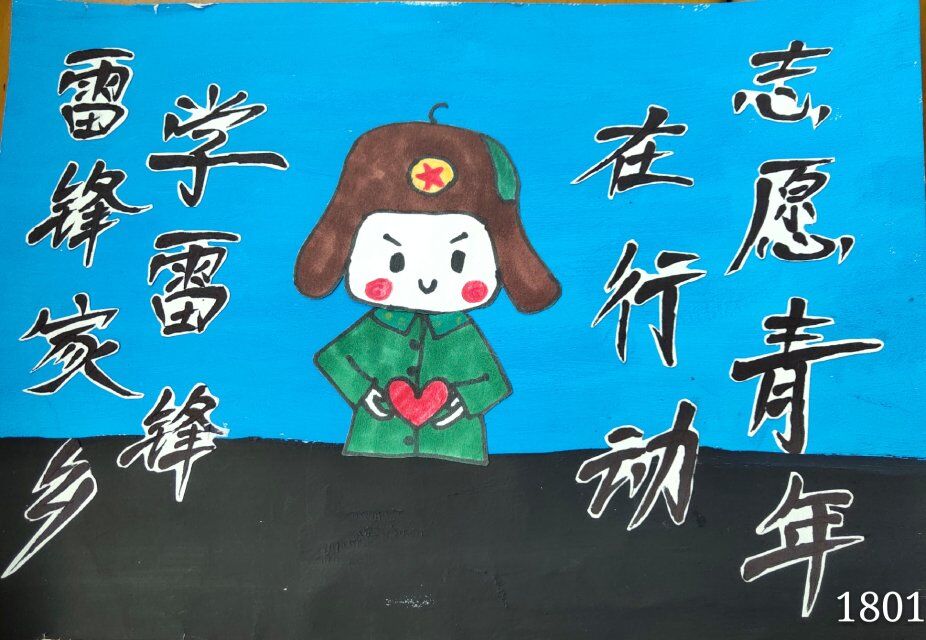 雷锋家乡
学雷锋
志愿青年
在行动
1801